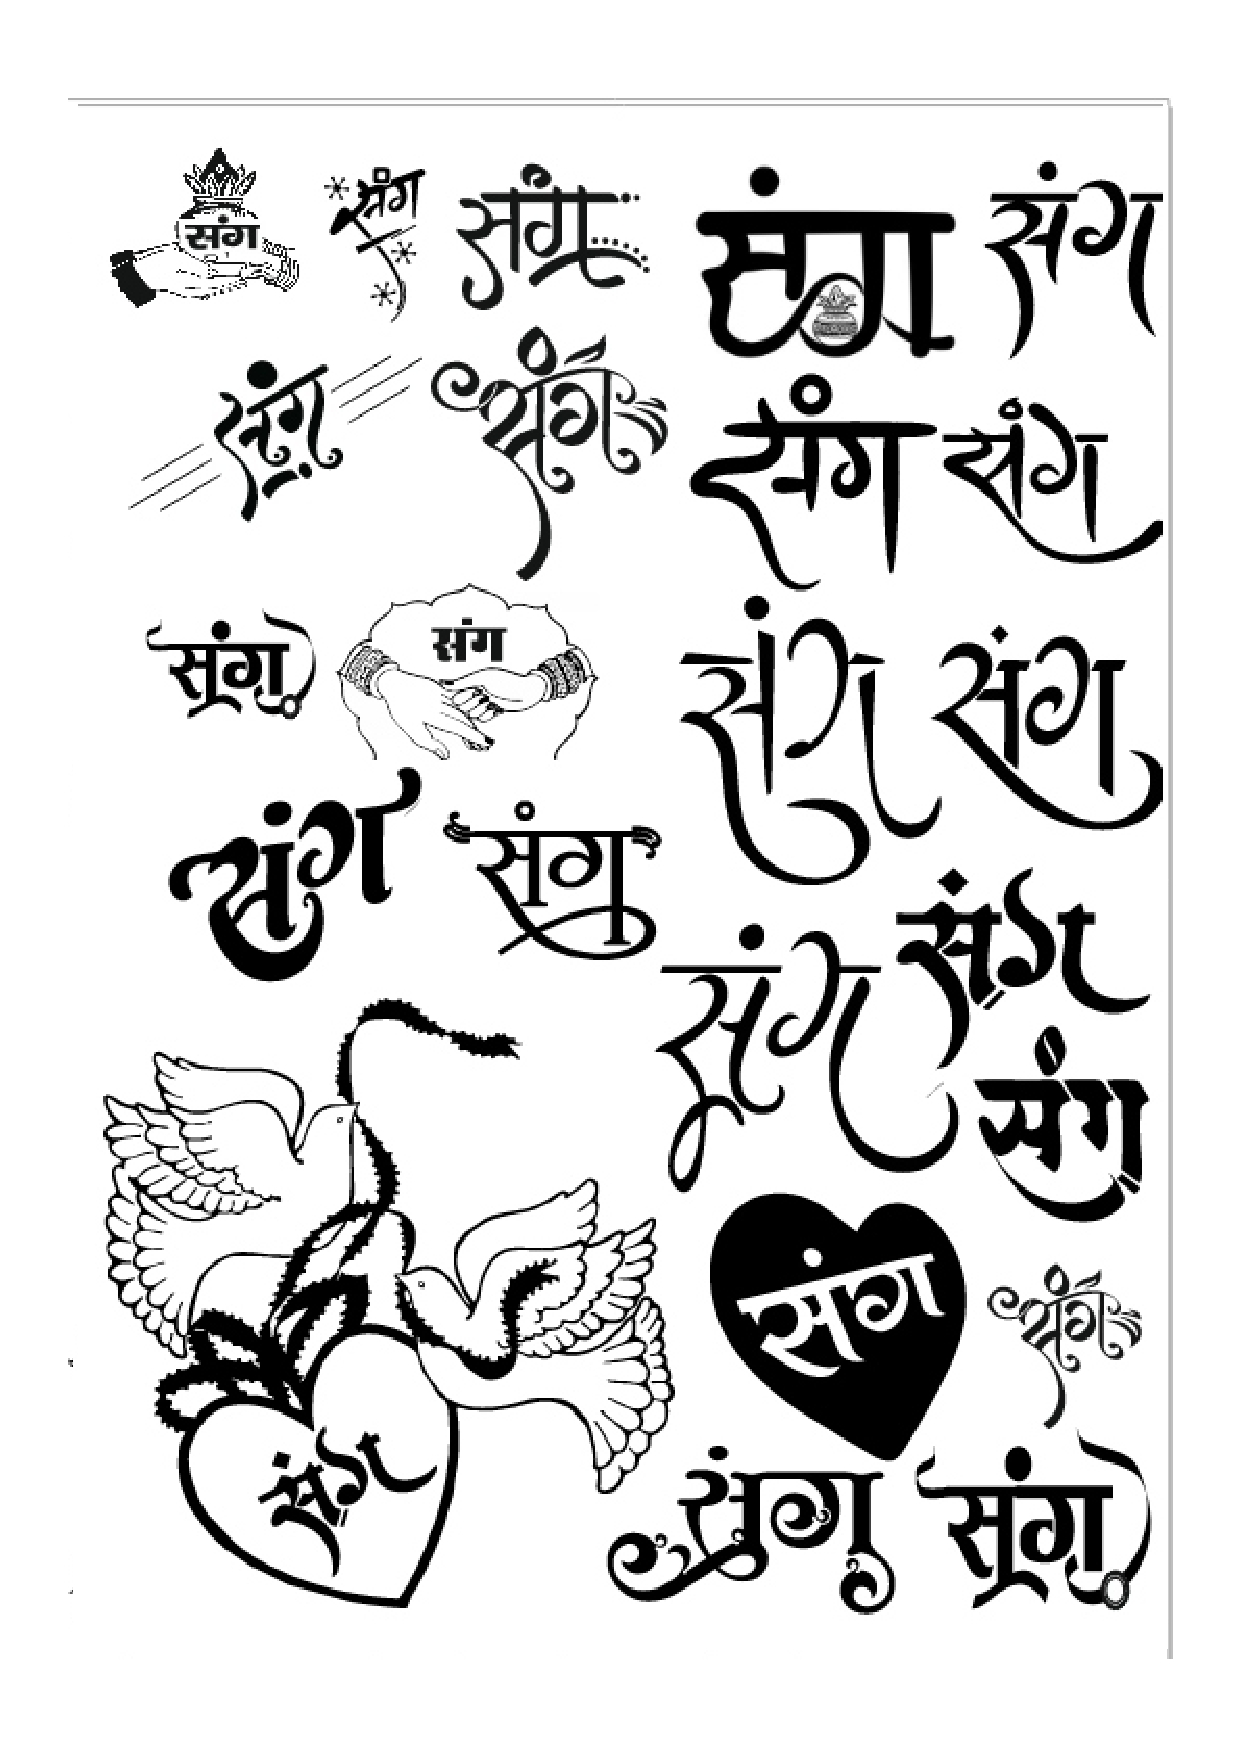 संग संग संग संग संग
संग संग संग संग
संग संग संग संग
संग संग संग संग
संग
संग संग
संग संग संग